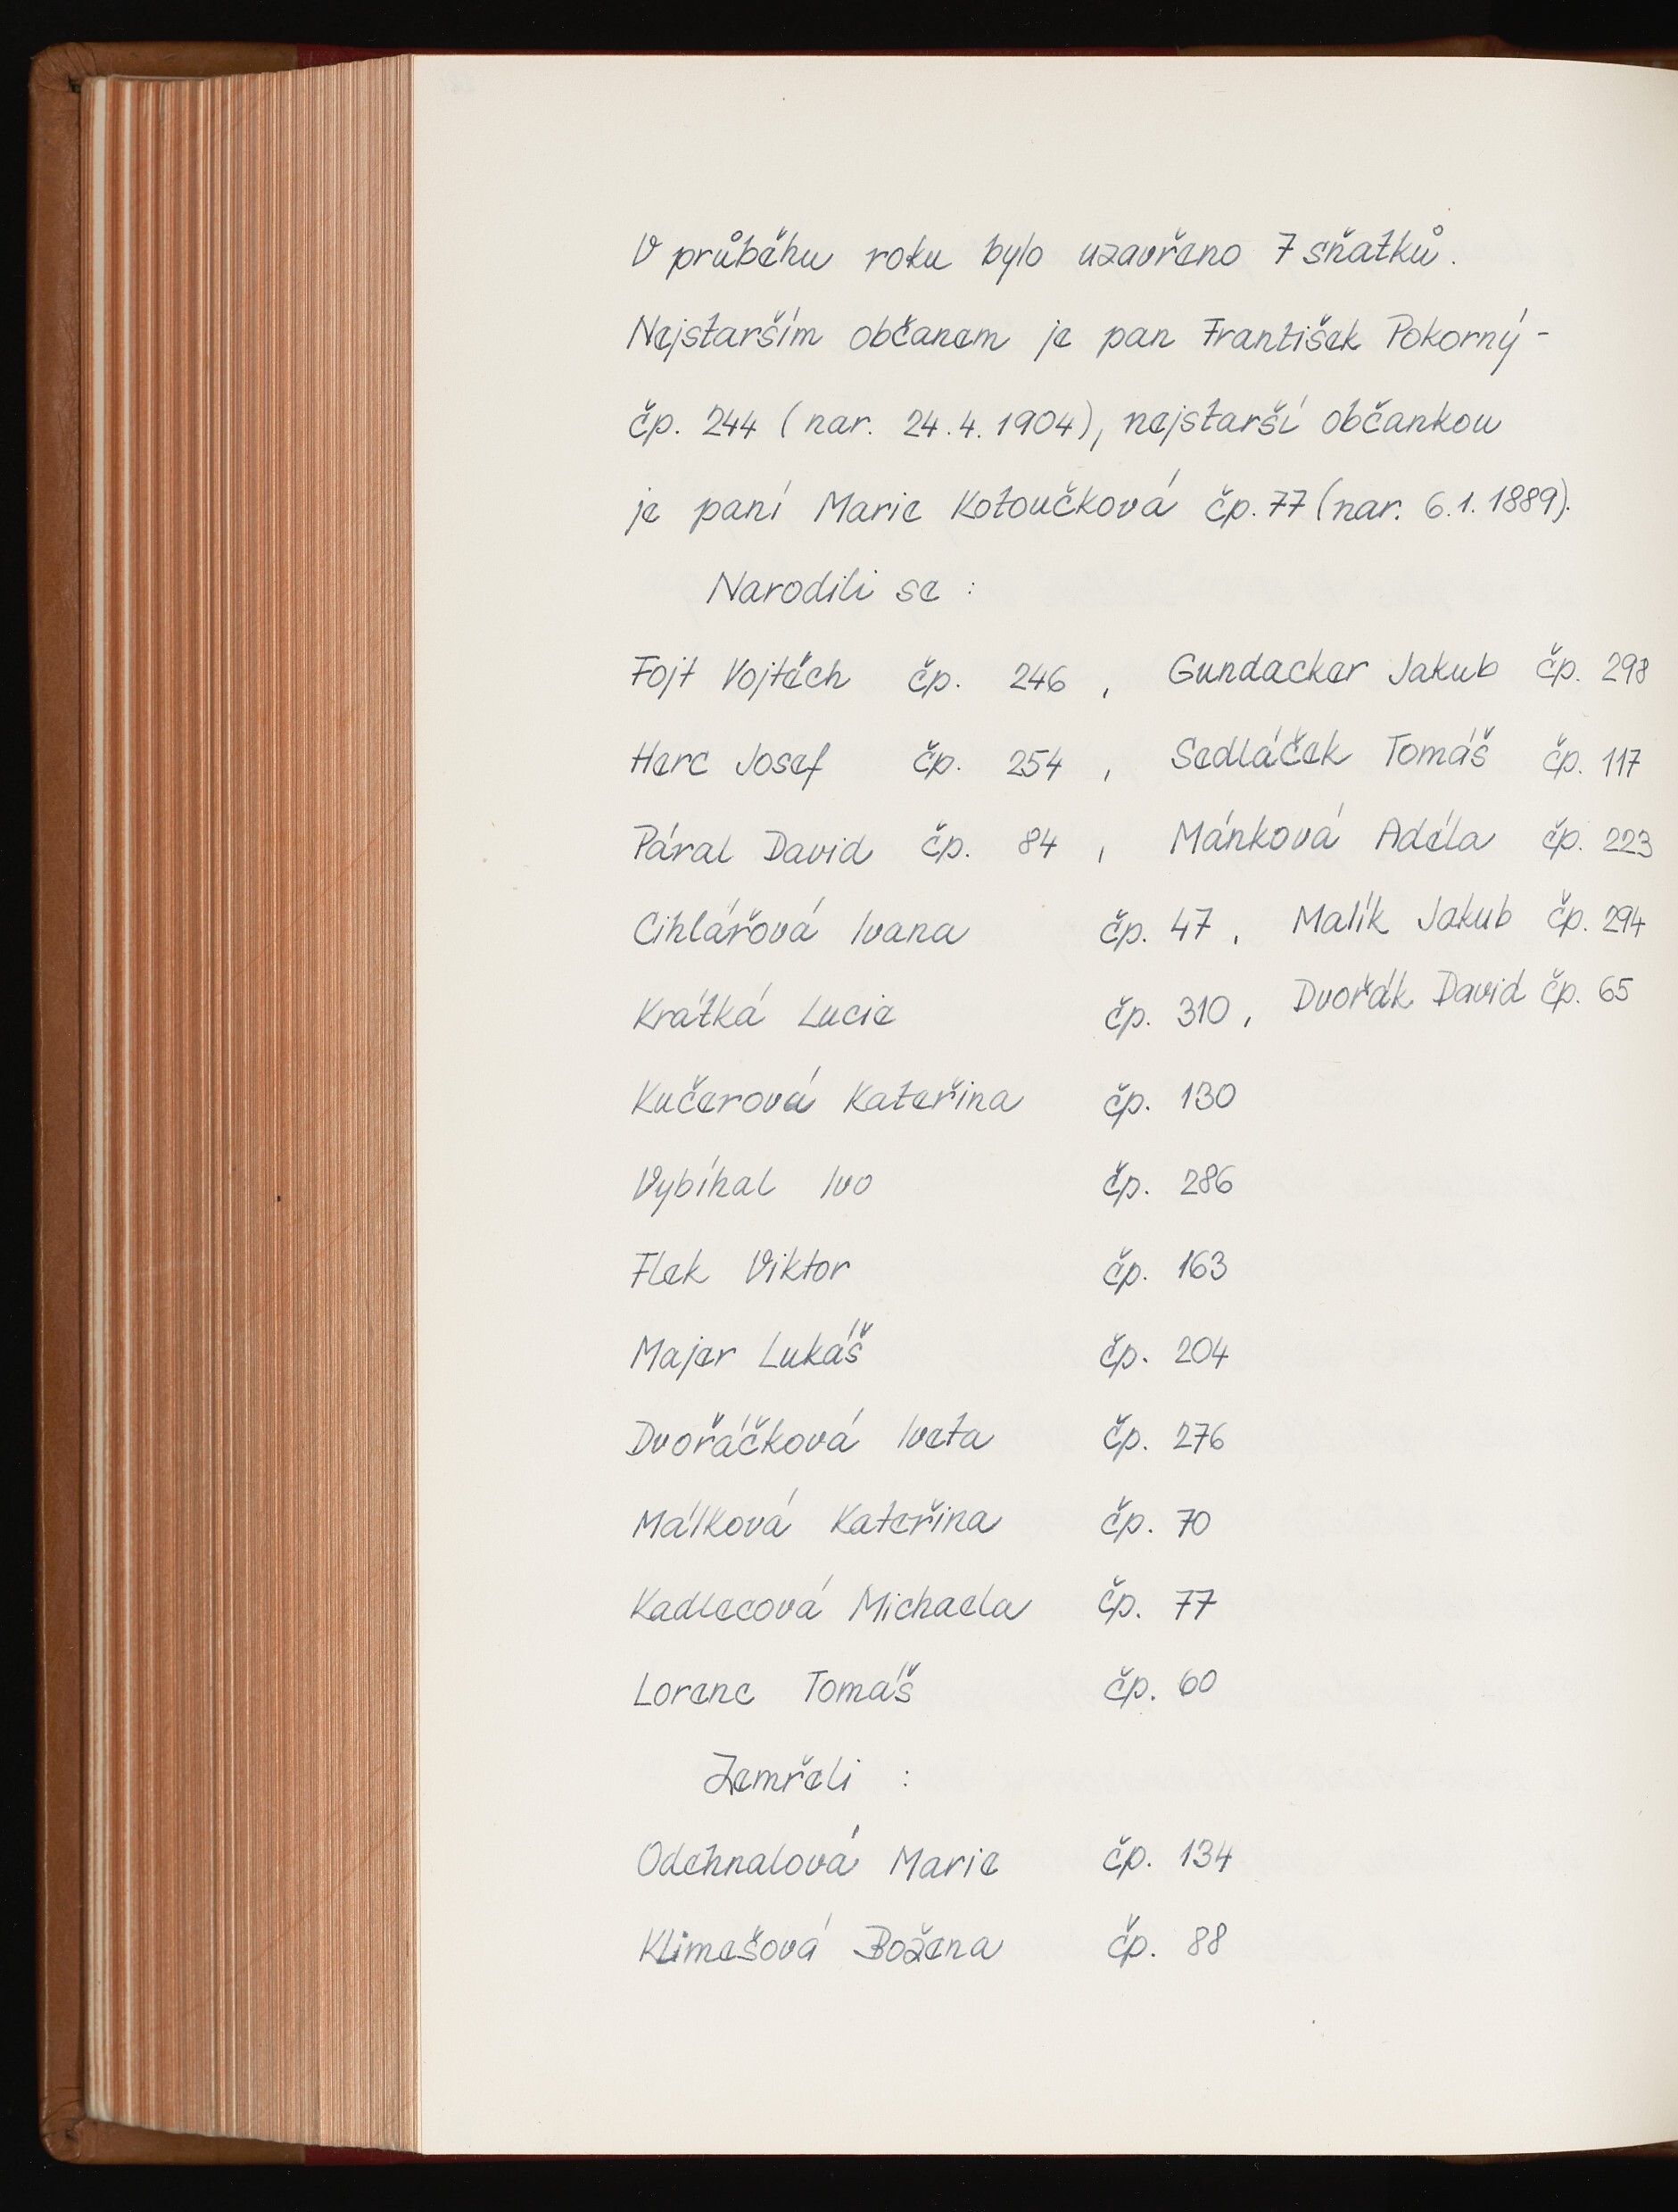 V průběhu roku bylo uzavřeno 7 sňatků.
Nejstarším občanem je pan František Pokorný -
čp. 244 (nar. 24.4.1904), nejstarší občankou
je paní Marie Kotoučková čp. 77 (nar. 6.1.1889).
Narodili se :
Fojt Vojtěch čp. 246 , Gundacker Jakub čp. 298
Herc Josef čp. 254 , Sedláček Tomáš čp. 117
Páral David čp. 84 , Mánková Adéla čp. 223
Cihlářová Ivana čp. 47 , Malík Jakub čp. 294
Krátká Lucie čp. 310 , Dvořák David čp. 65
Kučerová Kateřina čp. 130
Vybíhal Ivo čp. 286
Flek Viktor čp. 163
Majer Lukáš čp. 204
Dvořáčková Iveta čp. 276
Málková Kateřina čp. 70
Kadlecová Michaela čp. 77
Lorenc Tomáš čp. 60
Zemřeli :
Odehnalová Marie čp. 134
Klimešová Božena čp. 88